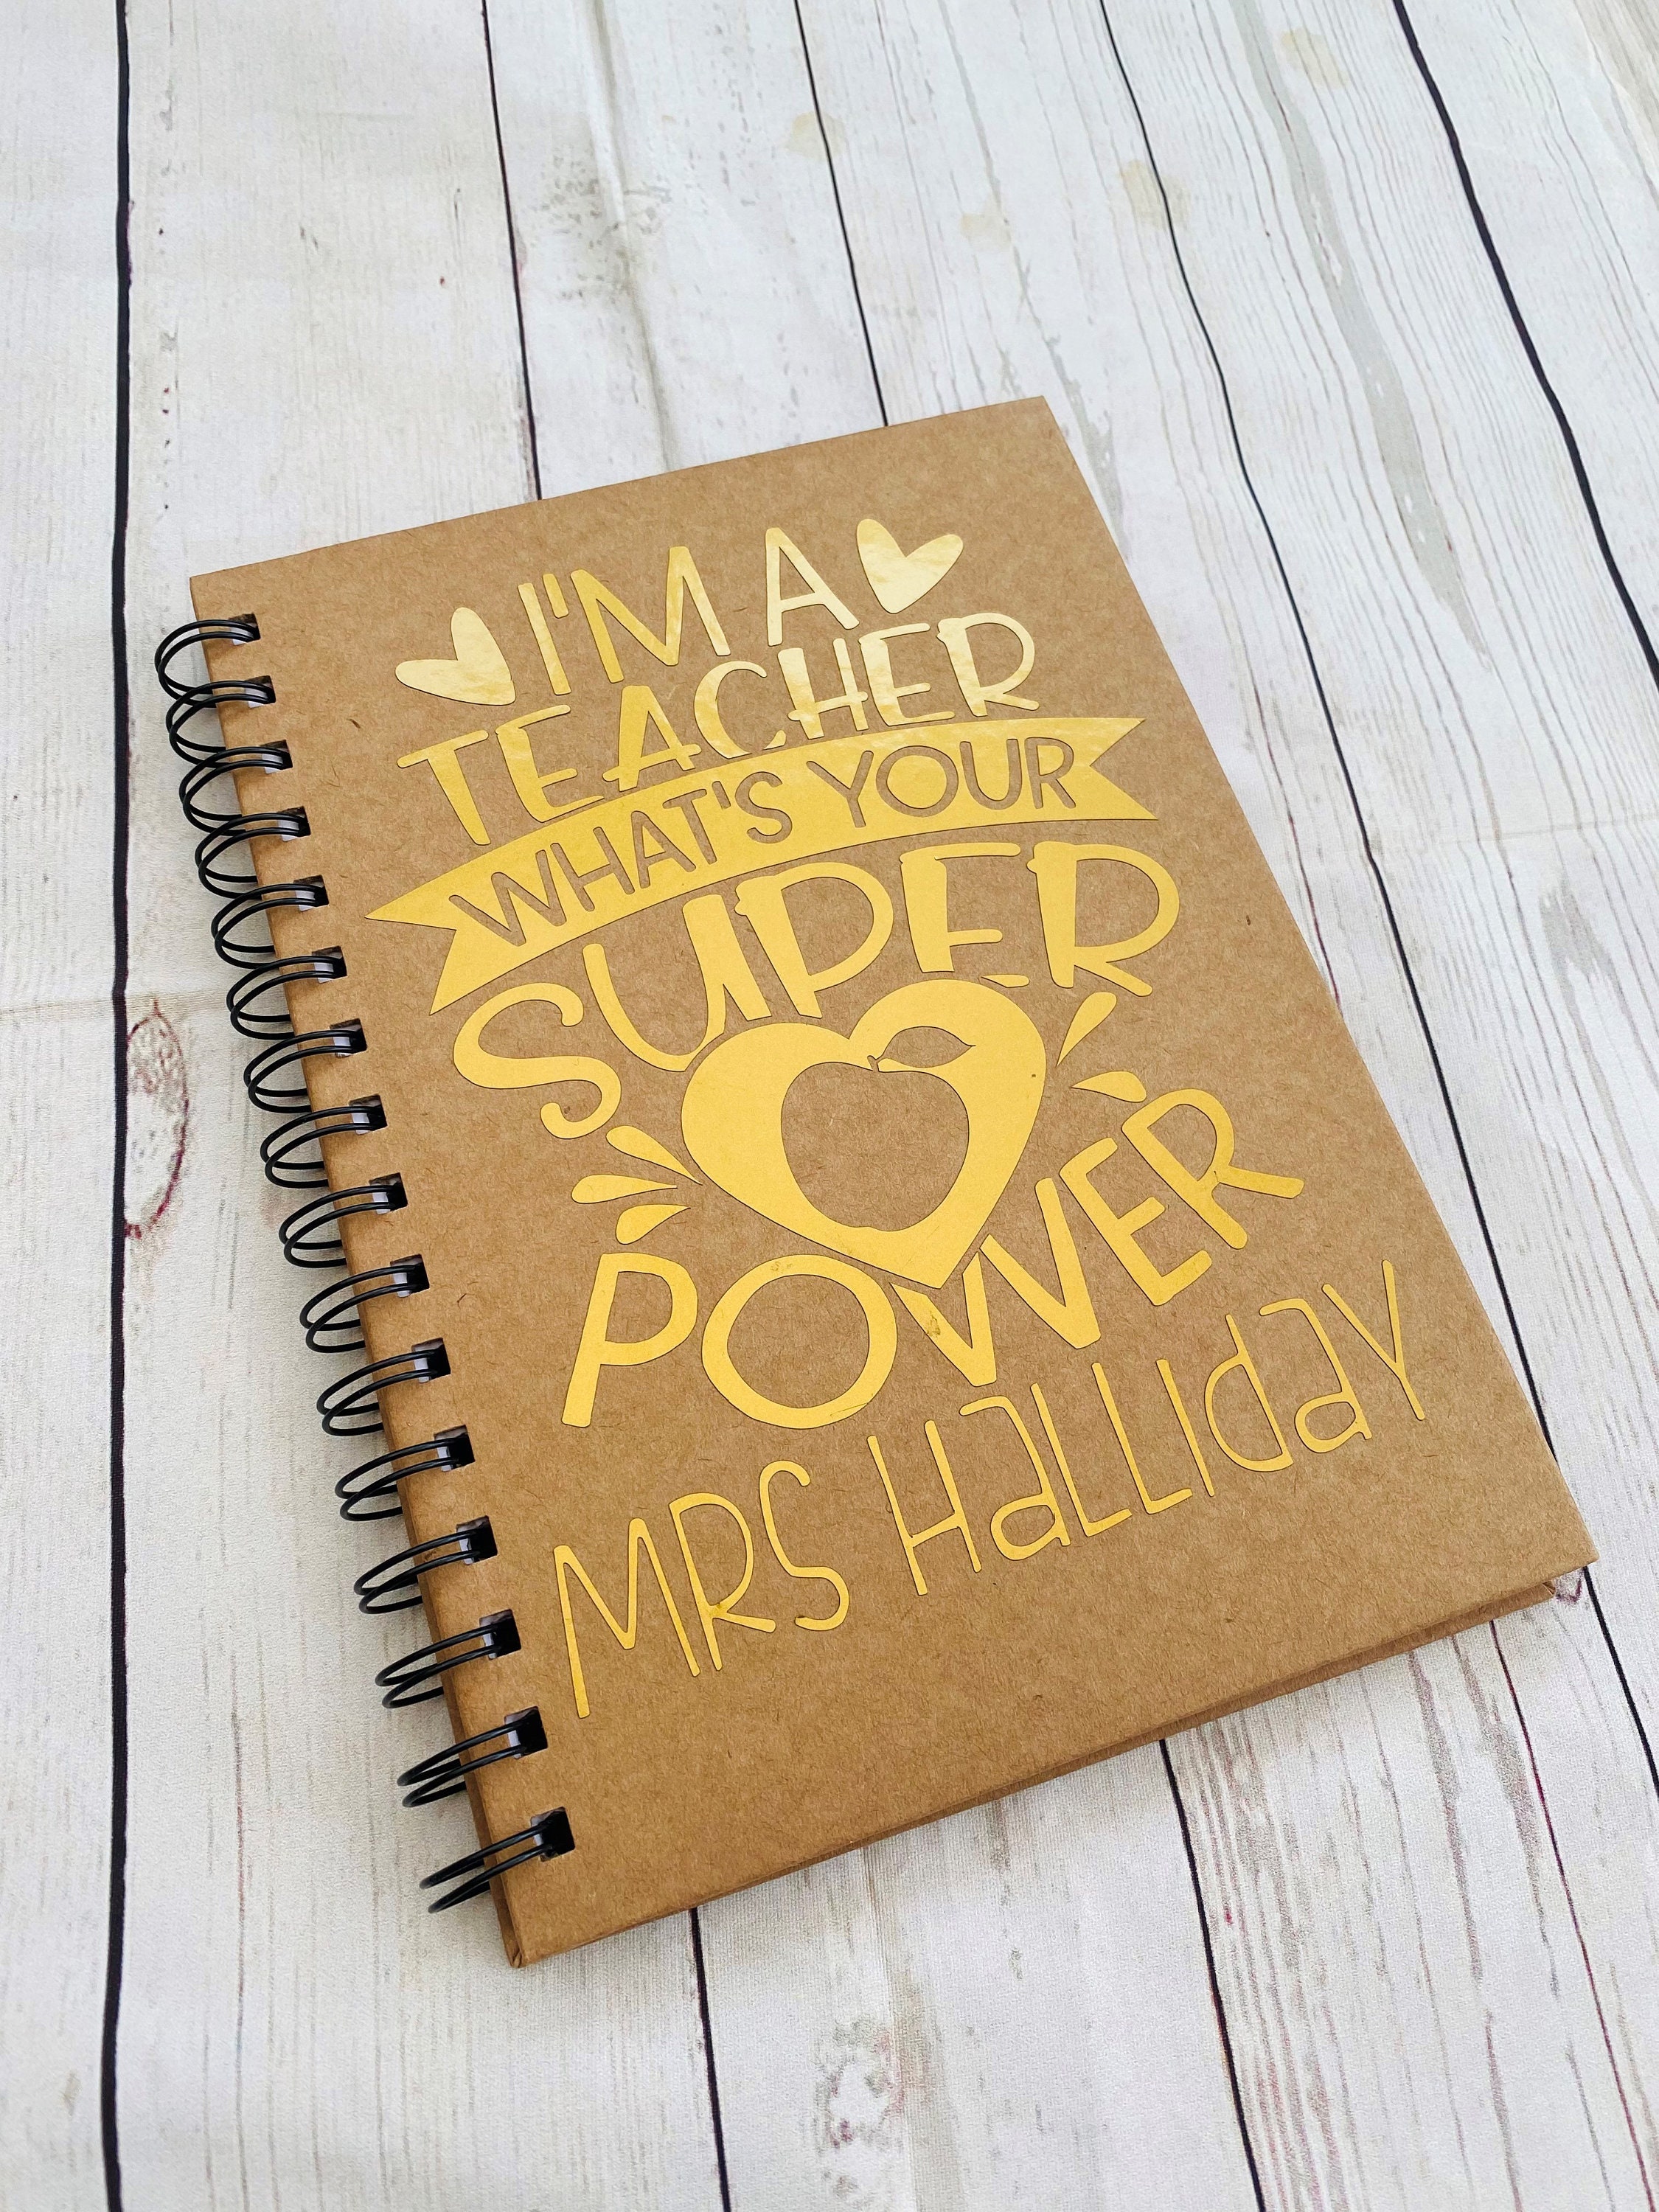 I'M A
TEACHER
WHAT'S YOUR
SUPER
POWER
MRS HaLLIdaY